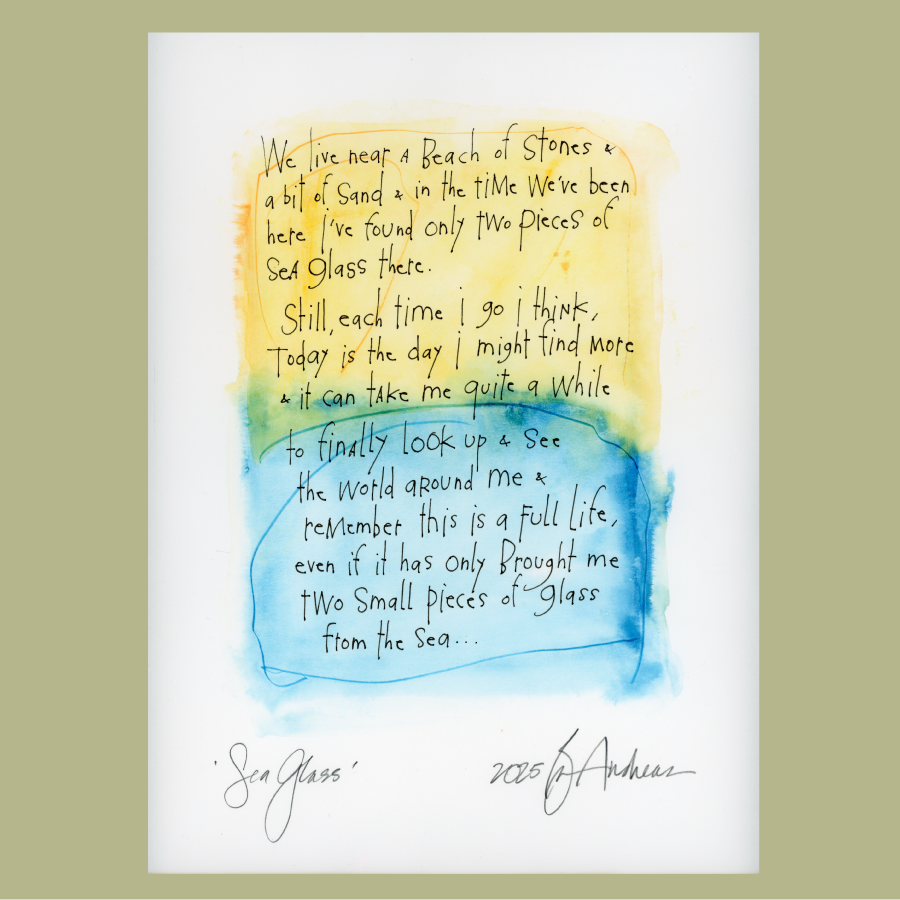 We live near A Beach of Stones &
a bit of Sand & in the tiMe We've been
here i've found only tWo pieces of
SeA glass there.
Still, each time i go i thiNK,
Today is the day i might find More
& it can tAke me quite a While
to finAlly look up & See
the World aRound me &
reMember this is a Full life,
even if it has only Brought me
tWo Small pieces of glass
from the Sea...
'Sea Glass'
2025 Andreas